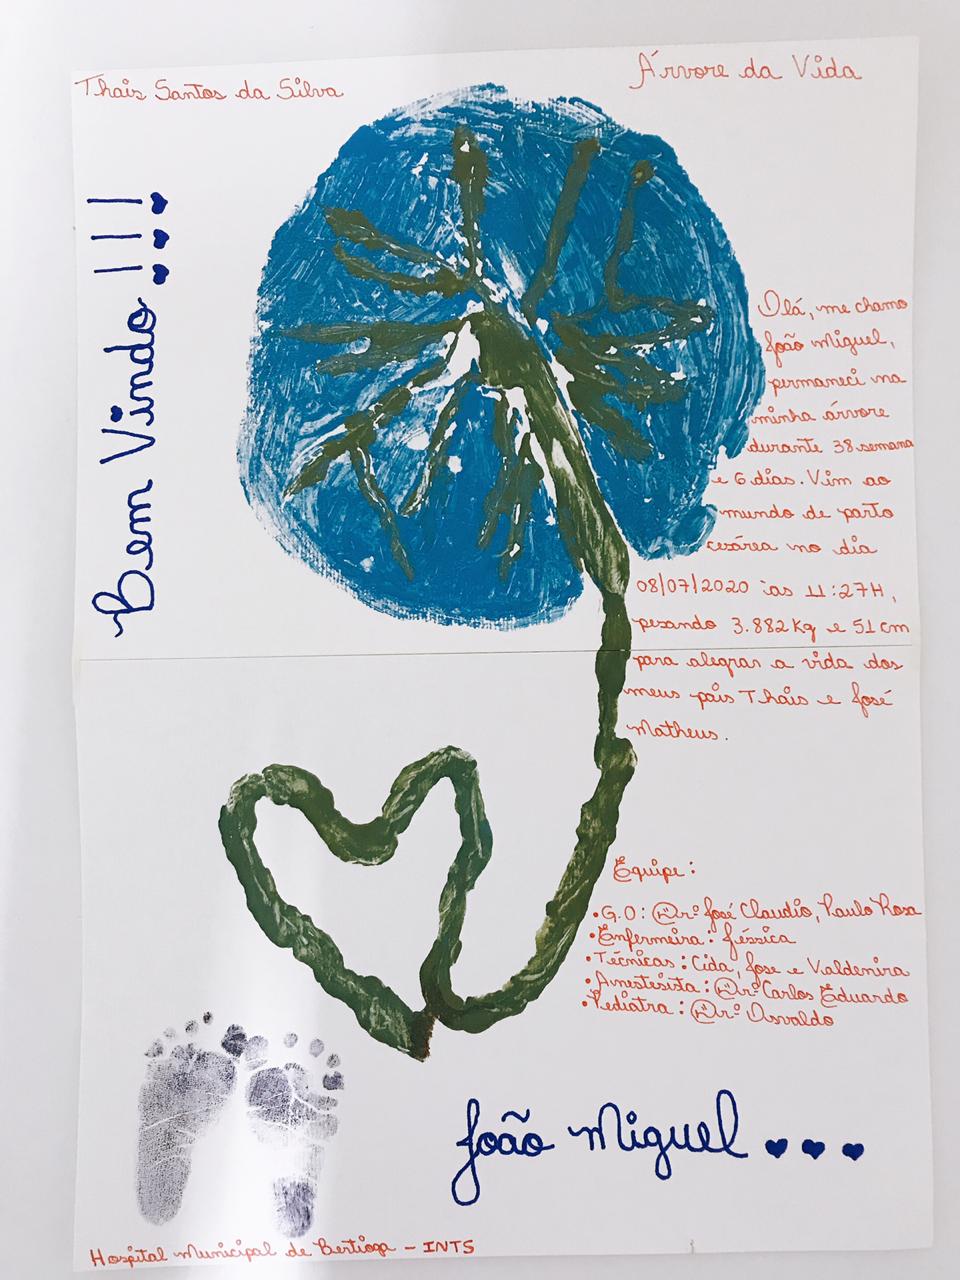 Thais Santos da Silva
Árvore da Vida
Bem Vindo!!!
Olá, me chamo
João Miguel,
permaneci na
minha árvore
durante 38 semana
e 6 dias. Vim ao
mundo de parto
cesárea no dia
08/07/2020 às 11:27H,
pesando 3.882kg e 51cm
para alegrar a vida dos
meus pais Thais e José
Matheus.
Equipe:
•G.O: Drº José Claudio, Paulo Rosa
•Enfermeira: Jéssica
•Técnicas: Cida, Jose e Valdenira
•Anestesista: Drº Carlos Eduardo
•Pediatra: Drº Osvaldo
João Miguel
Hospital Municipal de Bertioga - INTS